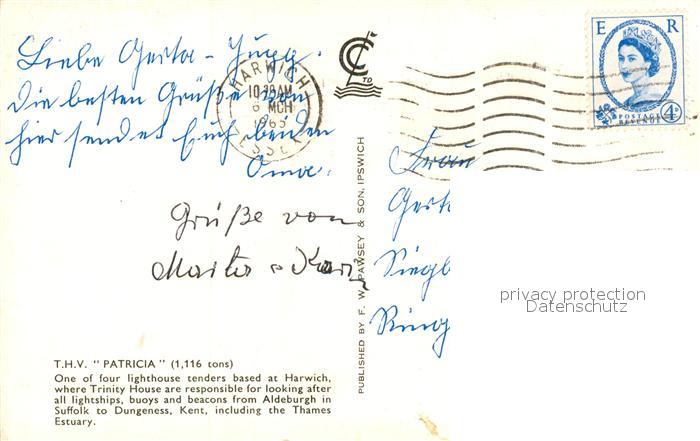 Liebe Gerta - Jupp.
Die besten Grüße von
hier sendet Euch beiden
Oma.
Grüße von
Marita u Karin
T.H.V. "PATRICIA" (1,116 tons)
One of four lighthouse tenders based at Harwich,
where Trinity House are responsible for looking after
all lightships, buoys and beacons from Aldeburgh in
Suffolk to Dungeness, Kent, including the Thames
Estuary.
PUBLISHED BY F. W. PAWSEY & SON, IPSWICH
HARWICH
AM
6 MCH
1965
ESSEX
E R
POSTAGE
REVENUE
4D
Frau
Gert
Siegb
Ring
privacy protection
Datenschutz